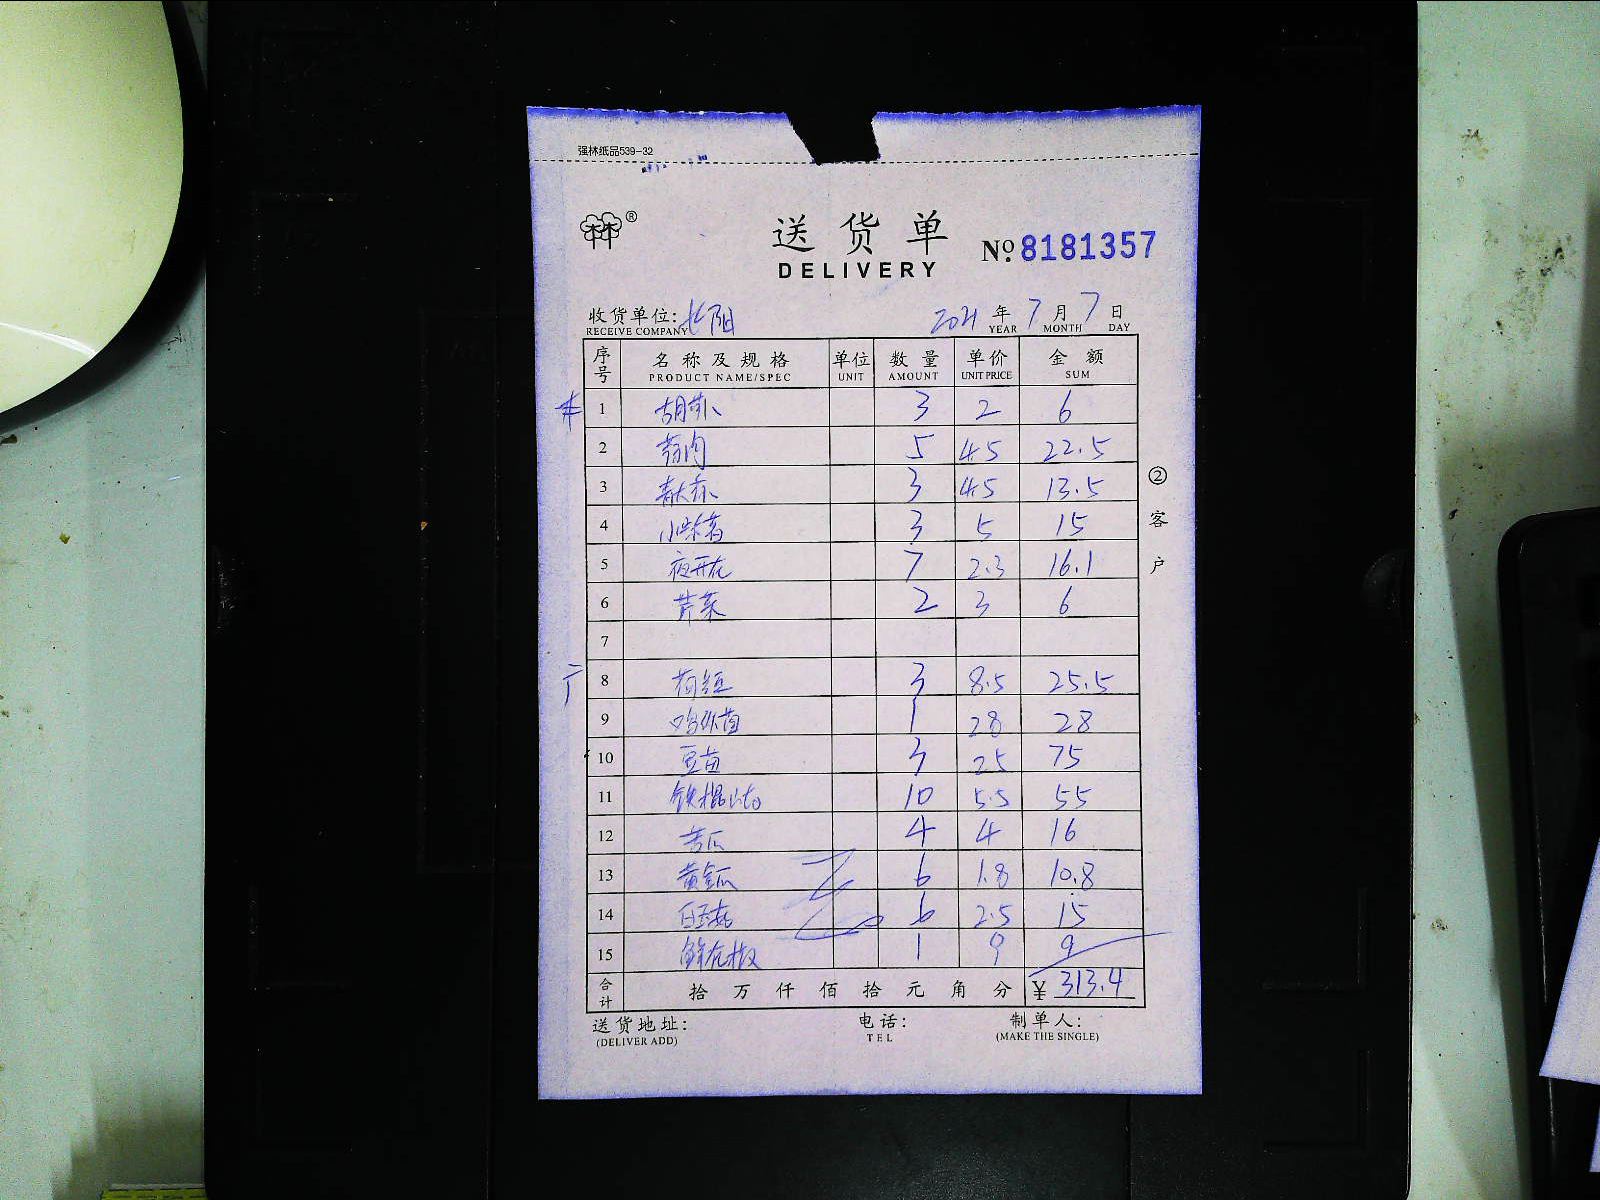 强林纸品539-32
林林 ®
送货单
DELIVERY
№ 8181357
收货单位: 长阳 2021 年 7 月 7 日
RECEIVE COMPANY YEAR MONTH DAY
序号 名称及规格 单位 数量 单价 金额
PRODUCT NAME/SPEC UNIT AMOUNT UNIT PRICE SUM
1 胡萝卜 3 2 6
2 5 4.5 22.5
3 3 4.5 13.5
4 小番 3 5 15
5 夜开花 7 2.3 16.1
6 芹菜 2 3 6
7
8 3 8.5 25.5
9 1 28 28
10 豆苗 3 25 75
11 铁棍山药 10 5.5 55
12 苦瓜 4 4 16
13 黄金瓜 6 1.8 10.8
14 白玉菇 6 2.5 15
15 1 9 9
合计 拾 万 仟 佰 拾 元 角 分 ¥ 313.4
② 客户
送货地址: 电话: 制单人:
(DELIVER ADD) TEL (MAKE THE SINGLE)